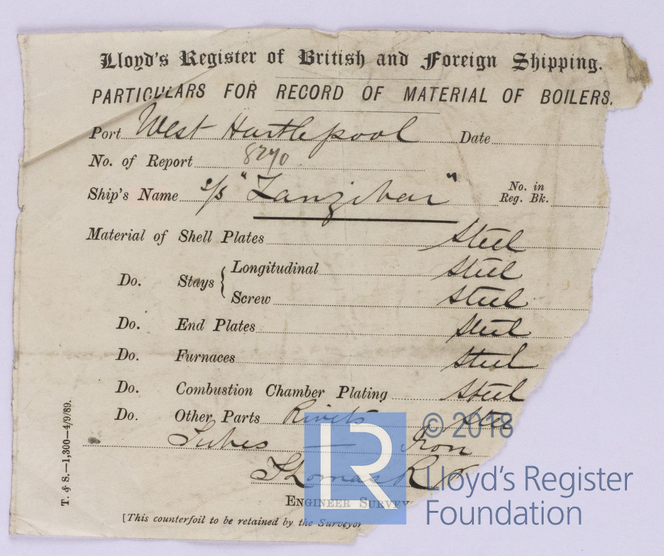 Lloyd's Register of British and Foreign Shipping.
PARTICULARS FOR RECORD OF MATERIAL OF BOILERS.
Port West Hartlepool Date
No. of Report 8270
Ship's Name s/s "Zanzibar" No. in Reg. Bk.
Material of Shell Plates Steel
Do. Stays { Longitudinal Steel
Screw Steel
Do. End Plates Steel
Do. Furnaces Steel
Do. Combustion Chamber Plating Steel
Do. Other Parts Rivets
Tubes — Iron
Thomas
ENGINEER SURVEY
[This counterfoil to be retained by the Surveyor
T. & S.—1,300—4/9/89.
© 2018
LR
Lloyd's Register
Foundation